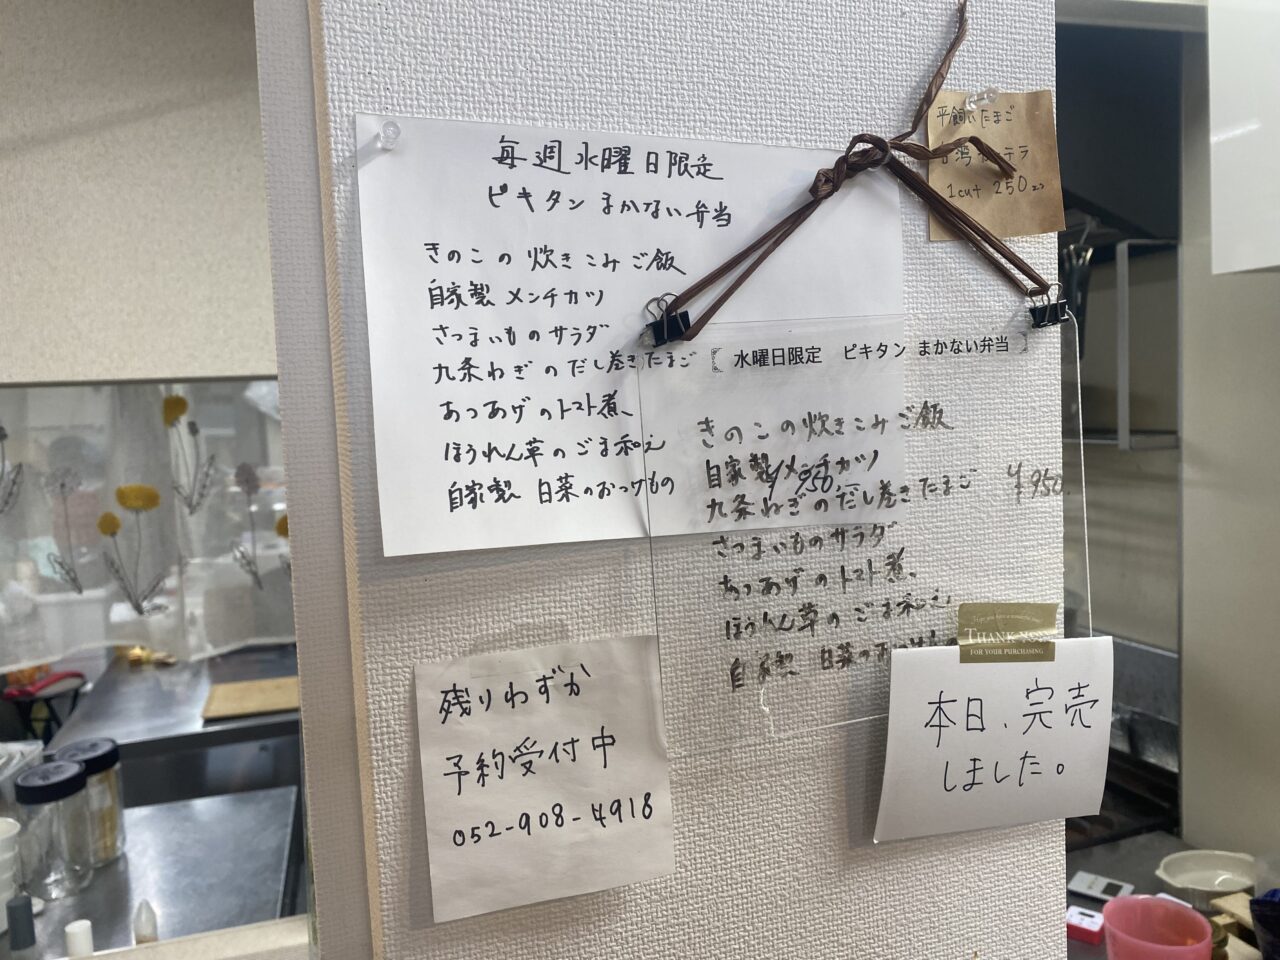 毎週水曜日限定
ピキタン まかない弁当
きのこの炊きこみご飯
自家製 メンチカツ
さつまいものサラダ
九条ねぎのだし巻きたまご
あつあげのトマト煮
ほうれん草のごま和え
自家製 白菜のおつけもの
¥950
平飼いたまご
台湾カステラ
1cut 250
水曜日限定 ピキタン まかない弁当
きのこの炊きこみご飯
自家製メンチカツ
九条ねぎのだし巻きたまご ¥950
さつまいものサラダ
あつあげのトマト煮
ほうれん草のごま和え
自家製 白菜のおつけもの
残りわずか
予約受付中
052-908-4918
THANK YOU
FOR YOUR PURCHASING
本日、完売
しました。